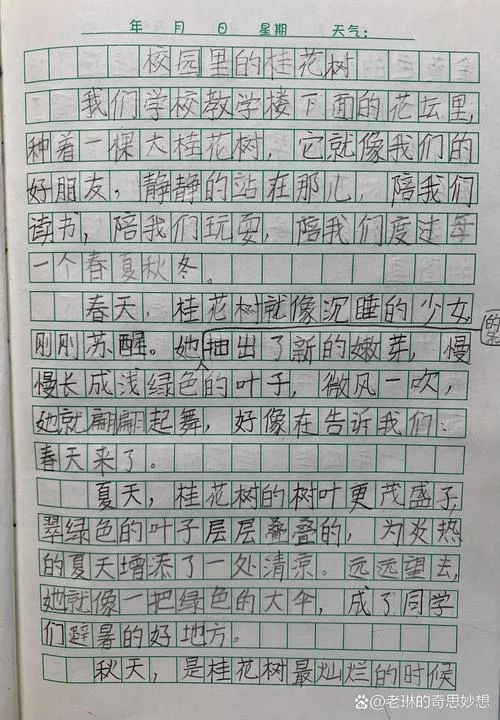 年 月 日 星期 天气：
校园里的桂花树
我们学校教学楼下面的花坛里，
种着一棵大桂花树，它就像我们的
好朋友，静静的站在那儿，陪我们
读书，陪我们玩耍，陪我们度过每
一个春夏秋冬。
春天，桂花树就像沉睡的少女
刚刚苏醒。她抽出了新的嫩芽，慢
慢长成浅绿色的叶子，微风一吹，
她就翩翩起舞，好像在告诉我们：
春天来了。
夏天，桂花树的树叶更茂盛了，
翠绿色的叶子层层叠叠的，为炎热
的夏天增添了一处清凉。远远望去，
她就像一把绿色的大伞，成了同学
们避暑的好地方。
秋天，是桂花树最灿烂的时候
@老琳的奇思妙想